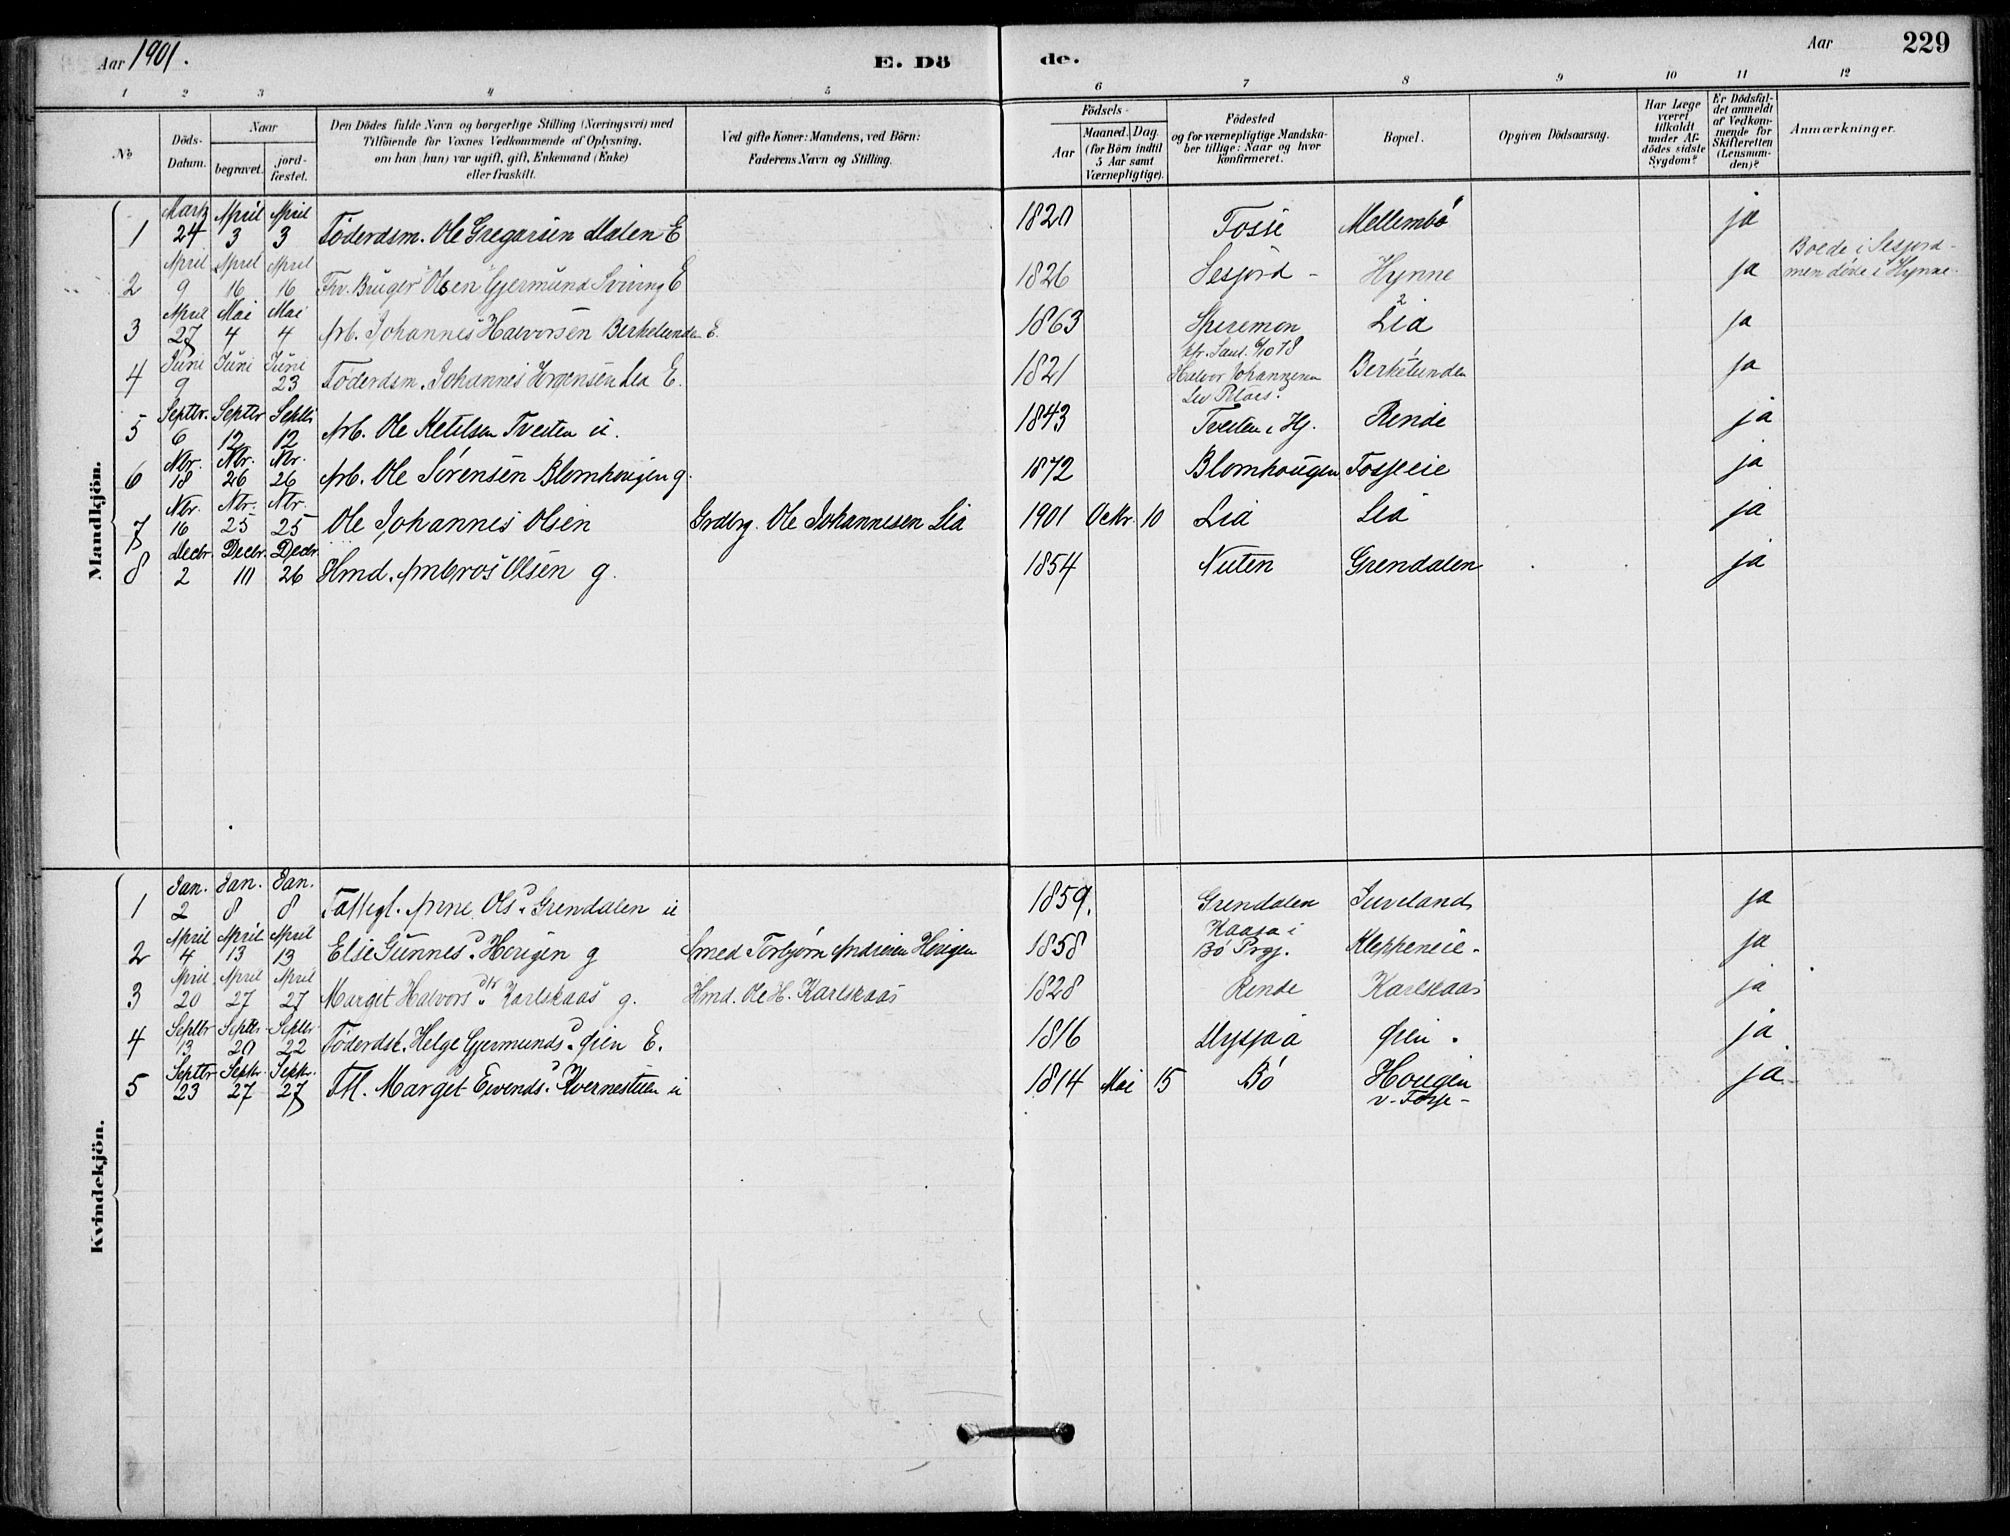 Aar 1901. E. Dö de. Aar 229
1 2 3 4 5 6 7 8 9 10 11 12
No
Döds-Datum.
Naar
begravet.
jordfæstet.
Den Dödes fulde Navn og borgerlige Stilling (Næringsvei) med
Tilföiende for Voxnes Vedkommende af Oplysning,
om han (hun) var ugift, gift, Enkemand (Enke)
eller fraskilt.
Ved gifte Koner: Mandens, ved Börn:
Faderens Navn og Stilling.
Födsels-
Aar
Maaned. Dag.
(for Börn indtil
5 Aar samt
Værnepligtige).
Födested
og for værnepligtige Mandska-
ber tillige: Naar og hvor
konfirmeret.
Bopæl.
Opgiven Dödsaarsag.
Har Læge
været
tilkaldt
under Af-
dödes sidste
Sygdom?
Er Dödsfal-
det anmeldt
af Vedkom-
mende for
Skifteretten
(Lensman-
den)?
Anmærkninger.
Mandkjön.
1 Marts 24 April 3 April 3 Föderdsm. Ole Gregarsen Dalen E 1820 Fosse Mellembö ja
2 April 9 April 16 April 16 Fv. Bruger Olsen Gjermund Sviring E 1826 Sesjord - Hynne ja Boede i Sesjord - men døde i Hynne.
3 April 27 Mai 4 Mai 4 Arb. Johannes Halvorsen Berkelunden E. 1863 Lia ja
4 Juni 9 Juni Juni 23 Föderdsm. Johannes Jorgensen Lia E. 1821 Halvor Johannesen Berkelunden ja
5 Septbr. 6 Septbr 12 Septbr 12 Arb. Ole Ketilsen Tveiten u. 1843 Tveiten i Hj. Rende ja
6 Nbr. 18 Nbr. 26 Nbr. 26 Arb. Ole Sörensen Blomhougen g. 1872 Blomhougen Fosjeeie ja
7 Nbr. 16 Nbr. 25 Nbr. 25 Ole Johannes Olsen Grdbrg. Ole Johannesen Lia 1901 Octbr. 10 Lia Lia ja
8 Decbr. 2 Decbr. 10 Decbr. 26 Hmd. Ambros Olsen g. 1854 Nuten Grendalen ja
Kvindekjön.
1 Jan. 2 Jan. 8 Jan. 8 Fattigl. Anne Olsd. Grendalen u 1859. Grendalen Juveland ja
2 April 4 April 13 April 13 Else Gunnesd. Hougen g Smed Torbjörn Andresen Hougen 1858 Kaasa i Bö Prgj. Kleppeneie - ja
3 April 20 April 27 April 27 Margit Halvorsdtr. Karlskaas g. Hmd. Ole H. Karlskaas 1828 Rende Karlskaas ja
4 Septbr 13 Septbr 20 Septbr 22 Föderdsk. Helge Gjermundsd. Øien E. 1816 Øien . ja
5 Septbr 23 Septbr. 27 Septbr. 27 Margit Eivendsd. Kvernestuen u 1814 Mai 15 Bö Hougen v. Fosje - ja